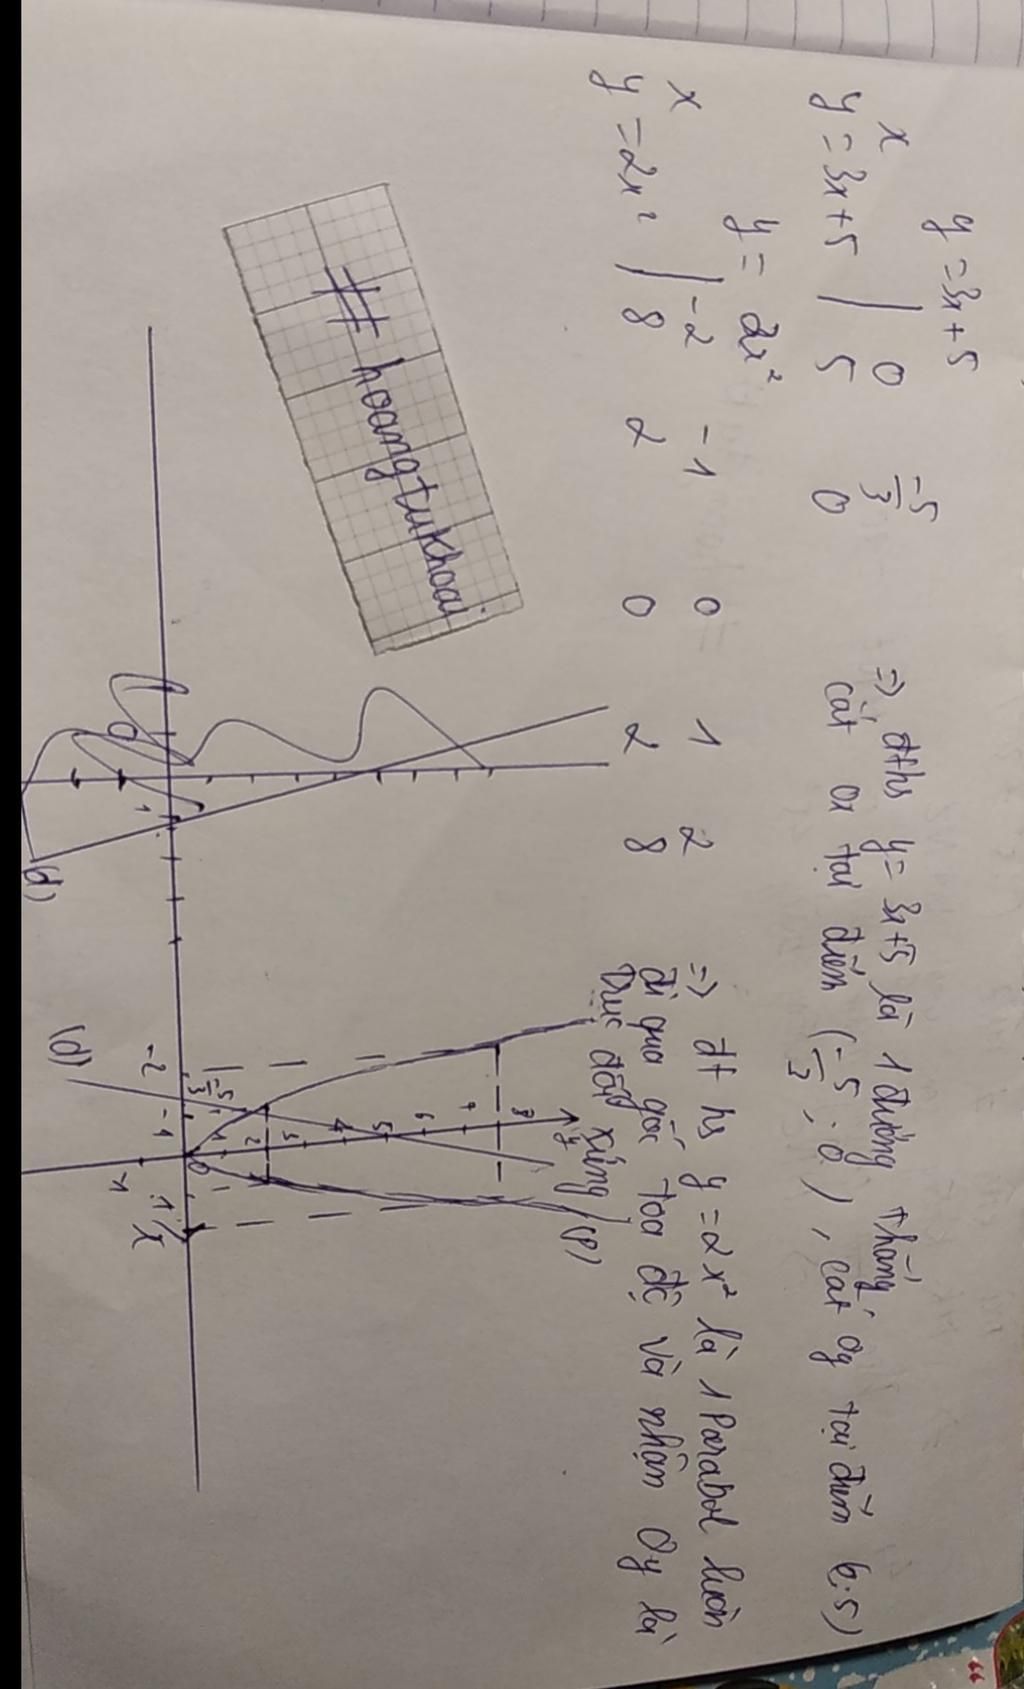 y = 3x+5
x | 0 -5/3
y = 3x+5 | 5 0
=> đths y = 3x+5 là 1 đường thẳng,
cắt ox tại điểm (-5/3 ; 0), cắt oy tại điểm (0;5)
y = 2x²
x | -2 -1 0 1 2
y = 2x² | 8 2 0 2 8
=> đt hs y = 2x² là 1 Parabol luôn
đi qua gốc toạ độ và nhận Oy là
trục đối xứng
# hoangtukhoai
1
(d)
y
8
7
6
5
4
3
2
1
(P)
(d)
-5/3
-2
-1
0
1
x
-1